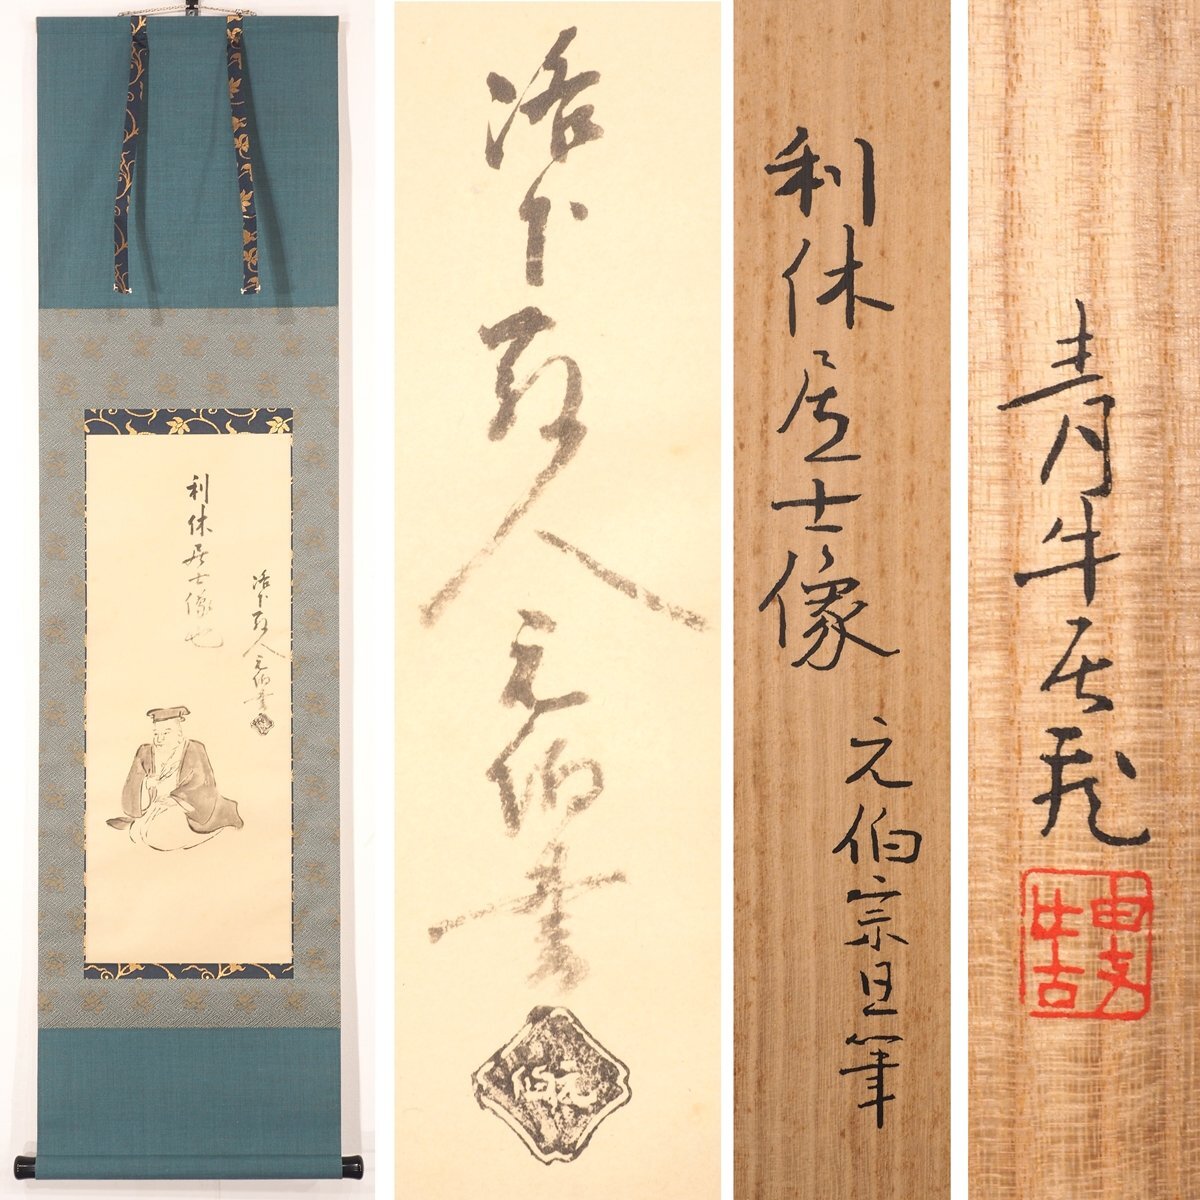 利休居士像也
洛下散人元伯書
洛下散人元伯書
元伯
利休居士像
元伯宗旦筆
青牛居